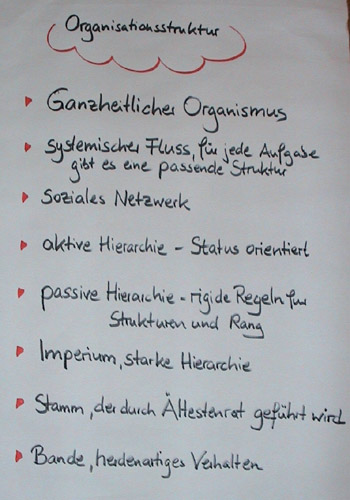 Organisationsstruktur
Ganzheitlicher Organismus
systemischer Fluss, für jede Aufgabe
gibt es eine passende Struktur
Soziales Netzwerk
aktive Hierarchie - Status orientiert
passive Hierarchie - rigide Regeln für
Strukturen und Rang
Imperium, starke Hierarchie
Stamm, der durch Ältestenrat geführt wird
Bande, herdenartiges Verhalten